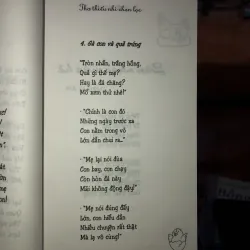 Thơ thiếu nhi chọn lọc
4. Gà con và quả trứng
"Tròn nhẵn, trắng hồng,
Quả gì thế mẹ?
Hay là đá chăng?
Mổ xem thử nhé!"
- "Chính là con đó
Những ngày trước xa
Con nằm trong vỏ
Lớn dần chui ra..."
"Mẹ lại nói đùa
Con bay, con chạy
Còn hòn đá này
Mãi không động đậy"
- "Mẹ nói đúng đấy
Lớn, con hiểu dần
Nhiều chuyện rất thật
Mà lạ vô cùng!"